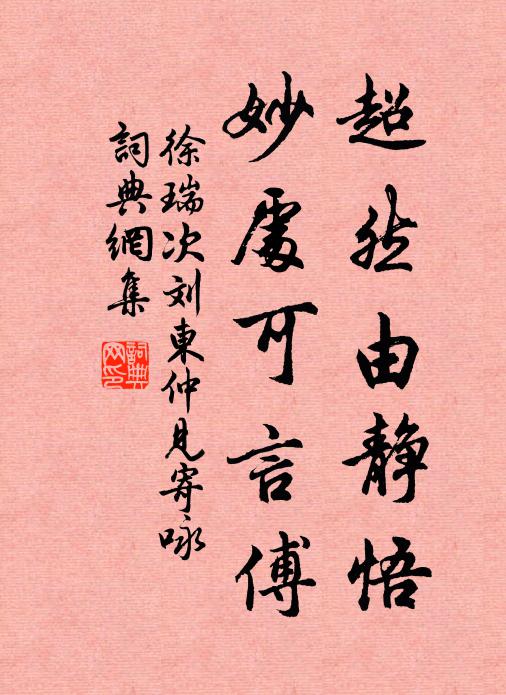 超然由静悟
妙處可言傅
徐瑞次刘東仲見寄咏
詞典網集
詞典
网印